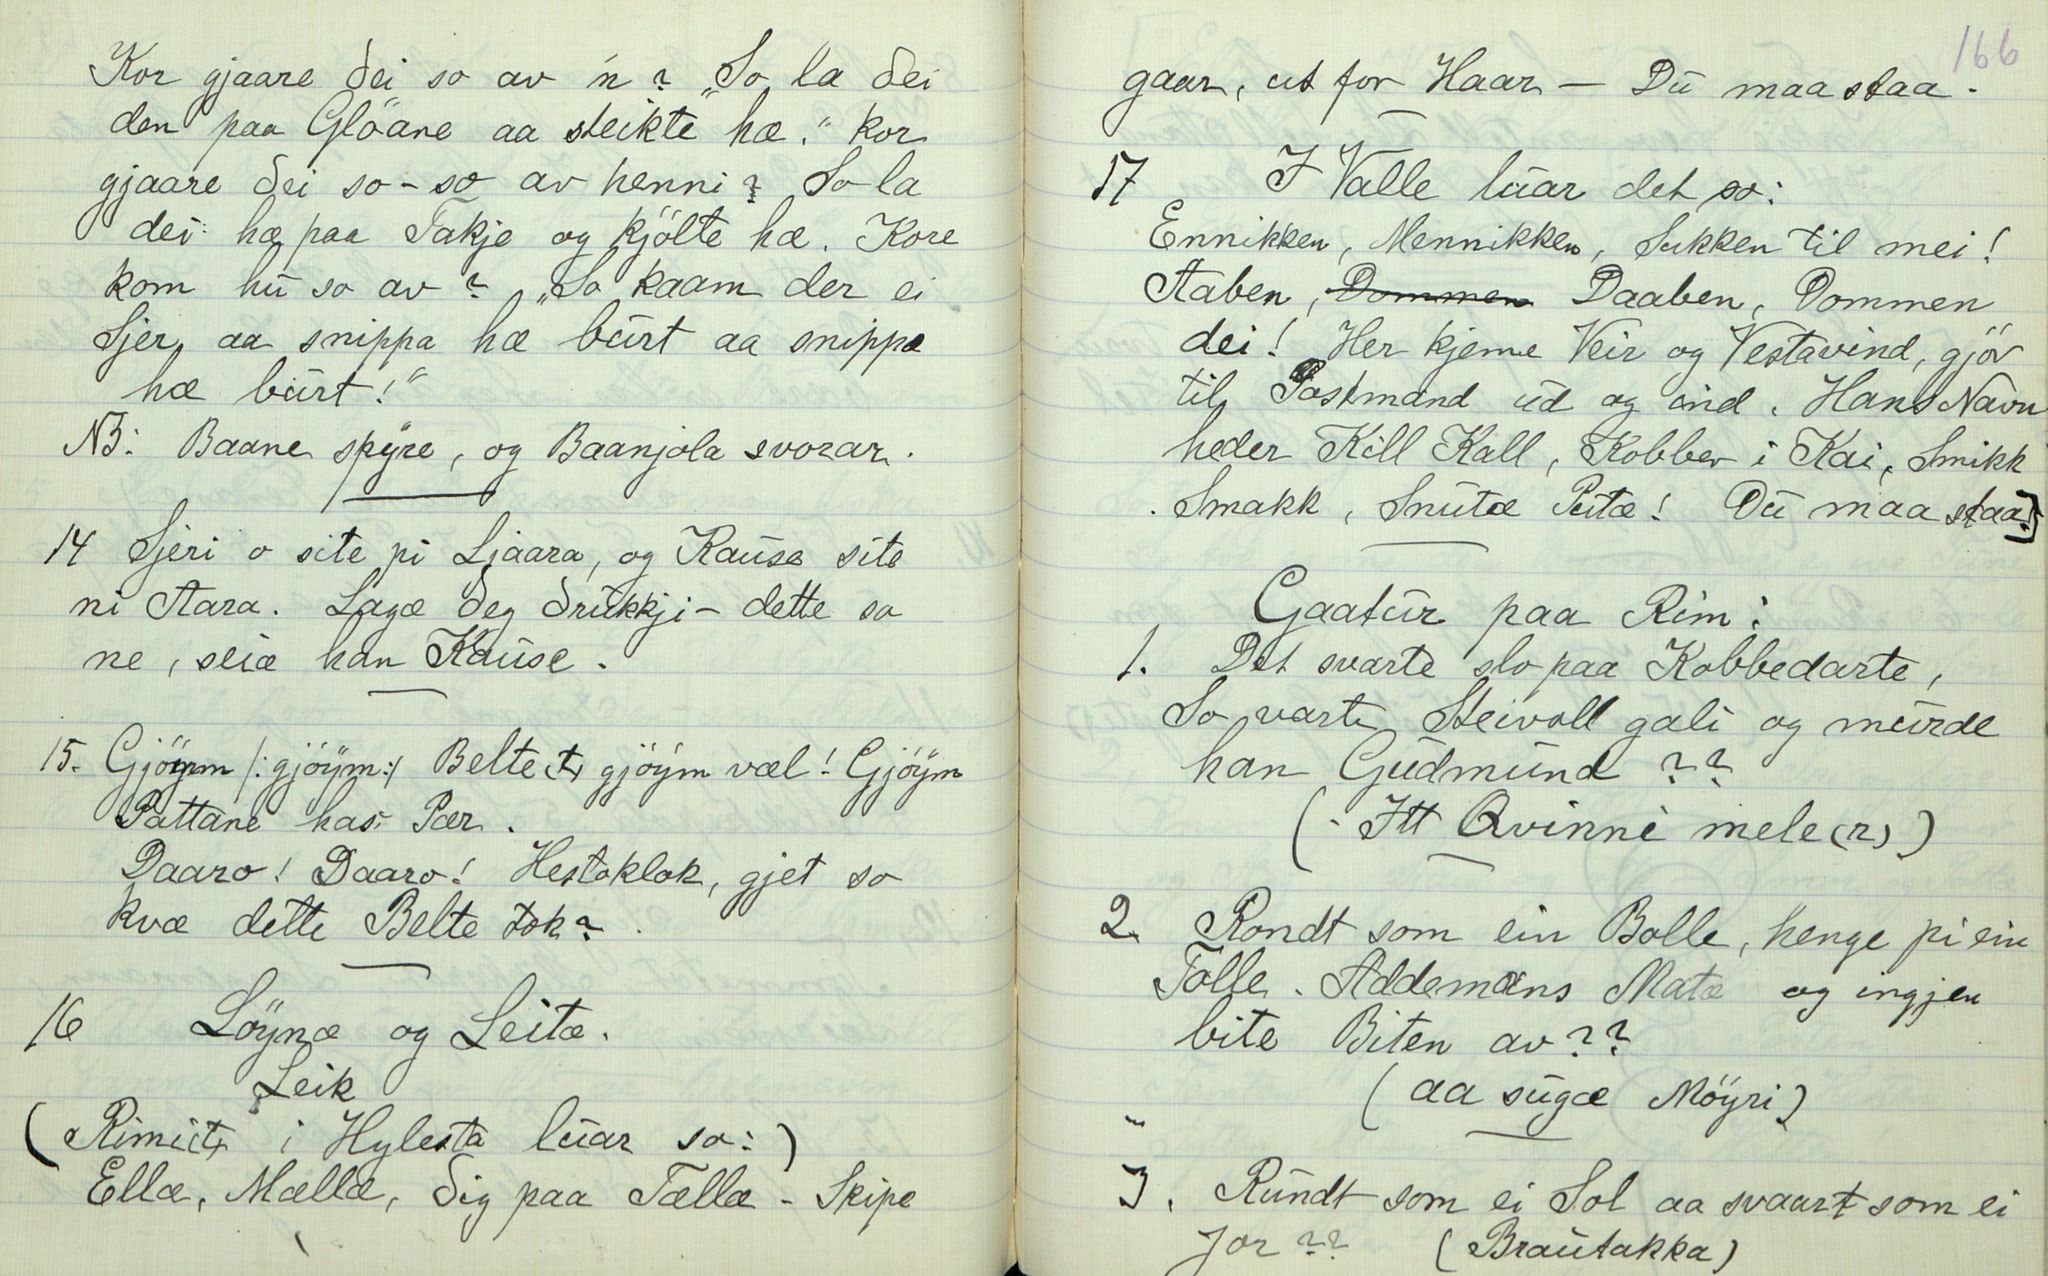 Kor gjaare dei so av 'n? „So la dei
den paa Glöane aa steikte hæ." kor
gjaare dei so-so av henni? So la
dei hæ paa Takje og kjölte hæ. Kore
kom hü so av? „So kaam der ei
Sjer aa snippa hæ bürt aa snippe
hæ bürt!"
NB: Baane spyre, og Baanjola svorar.
14 Sjeri o site pi Ljaara, og Kause site
ni Aara. Lagæ deg drukkji - dette so
ne, seiæ han Kause.
15. Gjöym /: gjöym :/ Belte(t) gjöym væl! Gjöym
Pattane hass Pær.
Daaro! Daaro! Hestoklok, gjet so
kvæ dette Belte tok?
16 Löynæ og Leitæ.
Leik
(Rimi(t) i Hylesta lüar so:)
Ellæ, Mællæ, dig paa Tællæ - Skipe
166
gaar, ut for Haar - Dü maa staa.
17 I Valle lüar det so:
Ennikken, Mennikken, Sukken til mei!
Staben, Dommen Daaben, Dommen
dei! Her kjeme Veir og Vestavind, gjöv
til Postmand üd og ind. Hans Navn
heder Kill Kall, Kobber i Kai, Smikk
Smakk, Snütæ Pütæ! Dü maa staa!]
Gaatür paa Rim:
1. Det svarte slo paa Kobbedarte,
So vart Steivoll gali og mürde
han Güdmünd ??
(Itt Qvinni mele(r))
2. Rondt som ein Bolle, henge pi ein
Tolle. Addemans Matæ og ingjen
bite Biten av??
(aa sügæ Möyri)
3. Ründt som ei Sol aa svaart som ei
Jor ?? (Braütakka)